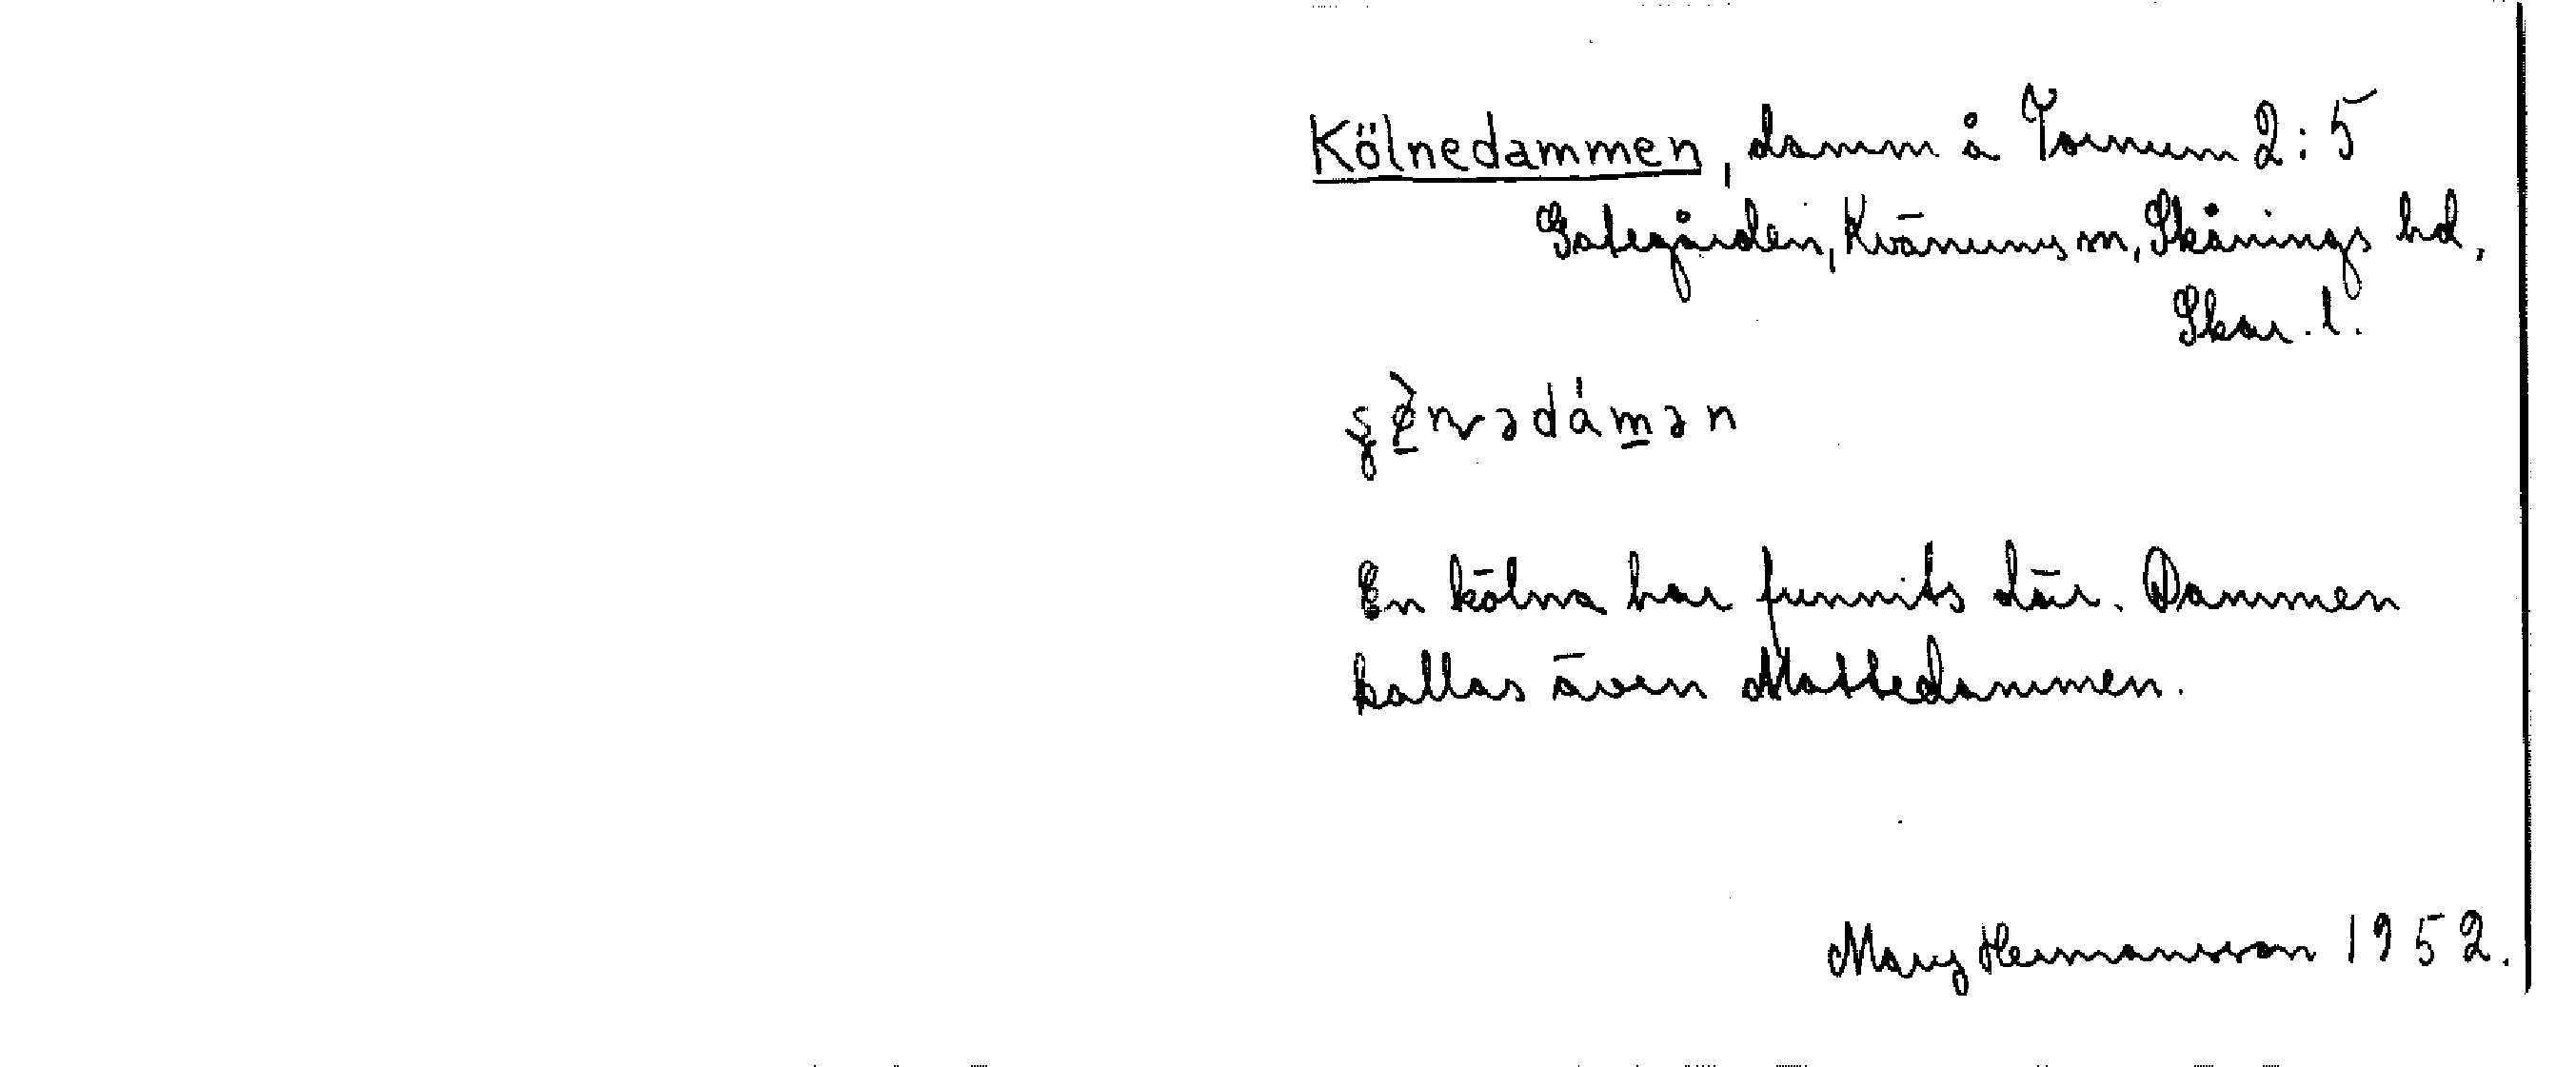 Kölnedammen, damm å Tornum 2:5
Gategården, Kvänums sn, Skånings hd,
Skar. l.
En kölna har funnits där. Dammen
kallas även Mattedammen.
Mary Hermansson 1952.